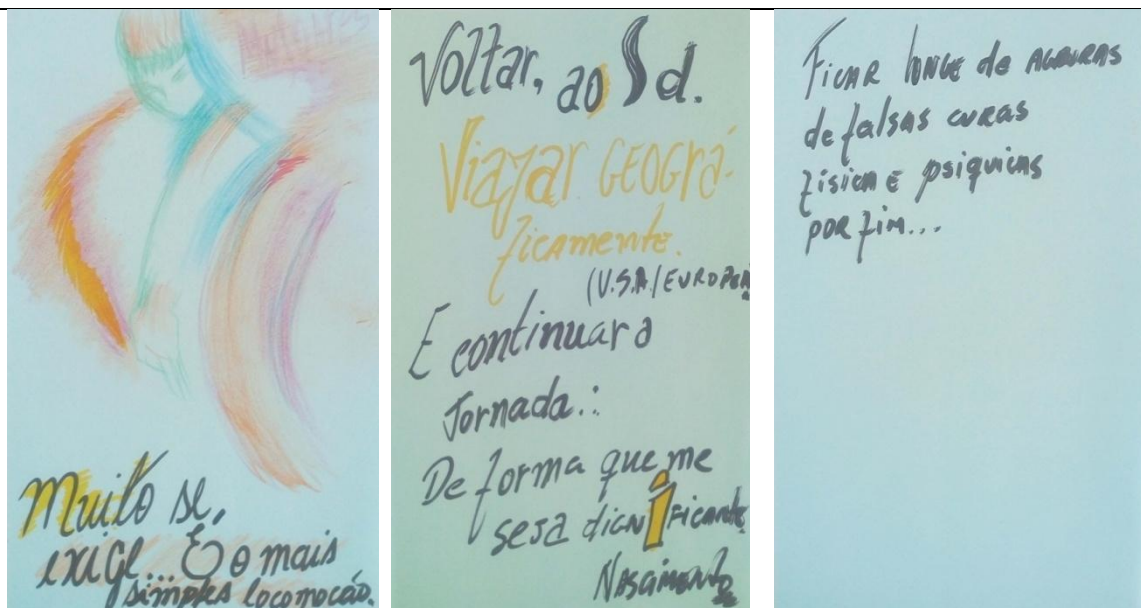 Muito se,
exige... E o mais
simples locomoção.
Voltar, ao Sd.
Viajar GEOGRÁ-
ficamente.
(U.S.A/EUROPEA
E continuar a
Jornada.:
De forma que me
seja digNificante
NASCIMENTO
FICAR lONGE de AGRURAS
de falsas curas
física E psiquicas
POR fim...